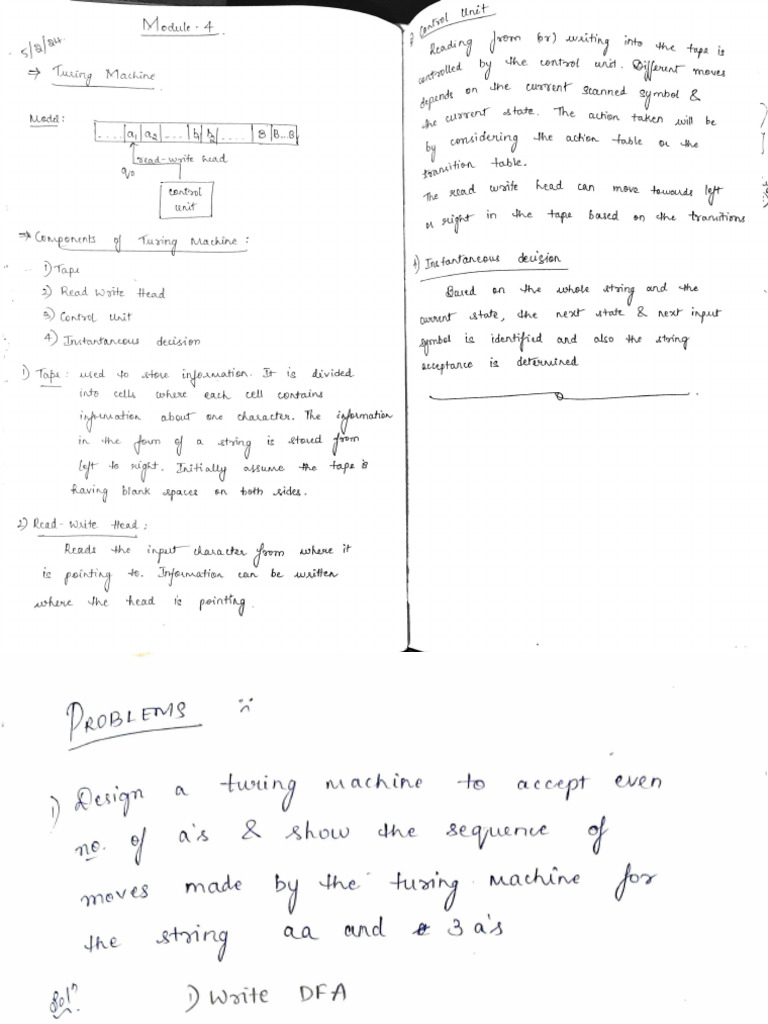 Module - 4.
5/8/24.
⇒ Turing Machine
Model:
..... a1 a2 .... b1 b2 ..... B B...B
read-write head
q0
control
unit
⇒ Components of Turing Machine:
1) Tape
2) Read Write Head
3) Control Unit
4) Instantaneous decision
1) Tape: used to store information. It is divided
into cells where each cell contains
information about one character. The information
in the form of a string is stored from
left to right. Initially assume the tape is
having blank spaces on both sides.
2) Read-Write Head:
Reads the input character from where it
is pointing to. Information can be written
where the head is pointing.
Control Unit
Reading from (or) writing into the tape is
controlled by the control unit. Different moves
depends on the current scanned symbol &
the current state. The action taken will be
by considering the action table or the
transition table.
The read write head can move towards left
or right in the tape based on the transitions
4) Instantaneous decision
Based on the whole string and the
current state, the next state & next input
symbol is identified and also the string
acceptance is determined
PROBLEMS
1) Design a turing machine to accept even
no. of a's & show the sequence of
moves made by the turing machine for
the string aa and 3 a's
Soln
1) Write DFA